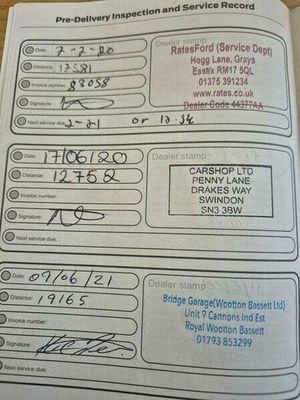 Pre-Delivery Inspection and Service Record
Date: 7-2-20
Distance: 12581
Invoice number: 83058
Signature:
Next service due: 2-21 or 12.5k
Dealer stamp
RatesFord (Service Dept)
Hogg Lane, Grays
Essex RM17 5QL
01375 391234
www.rates.co.uk
Dealer Code 44377AA
Date: 17/06/20
Distance: 12752
Invoice number:
Signature:
Next service due:
Dealer stamp
CARSHOP LTD
PENNY LANE
DRAKES WAY
SWINDON
SN3 3BW
Date: 09/06/21
Distance: 19165
Invoice number:
Signature:
Next service due:
Dealer stamp
Bridge Garage(Wootton Bassett Ltd)
Unit 9 Cannons Ind Est
Royal Wootton Bassett
01793 853299